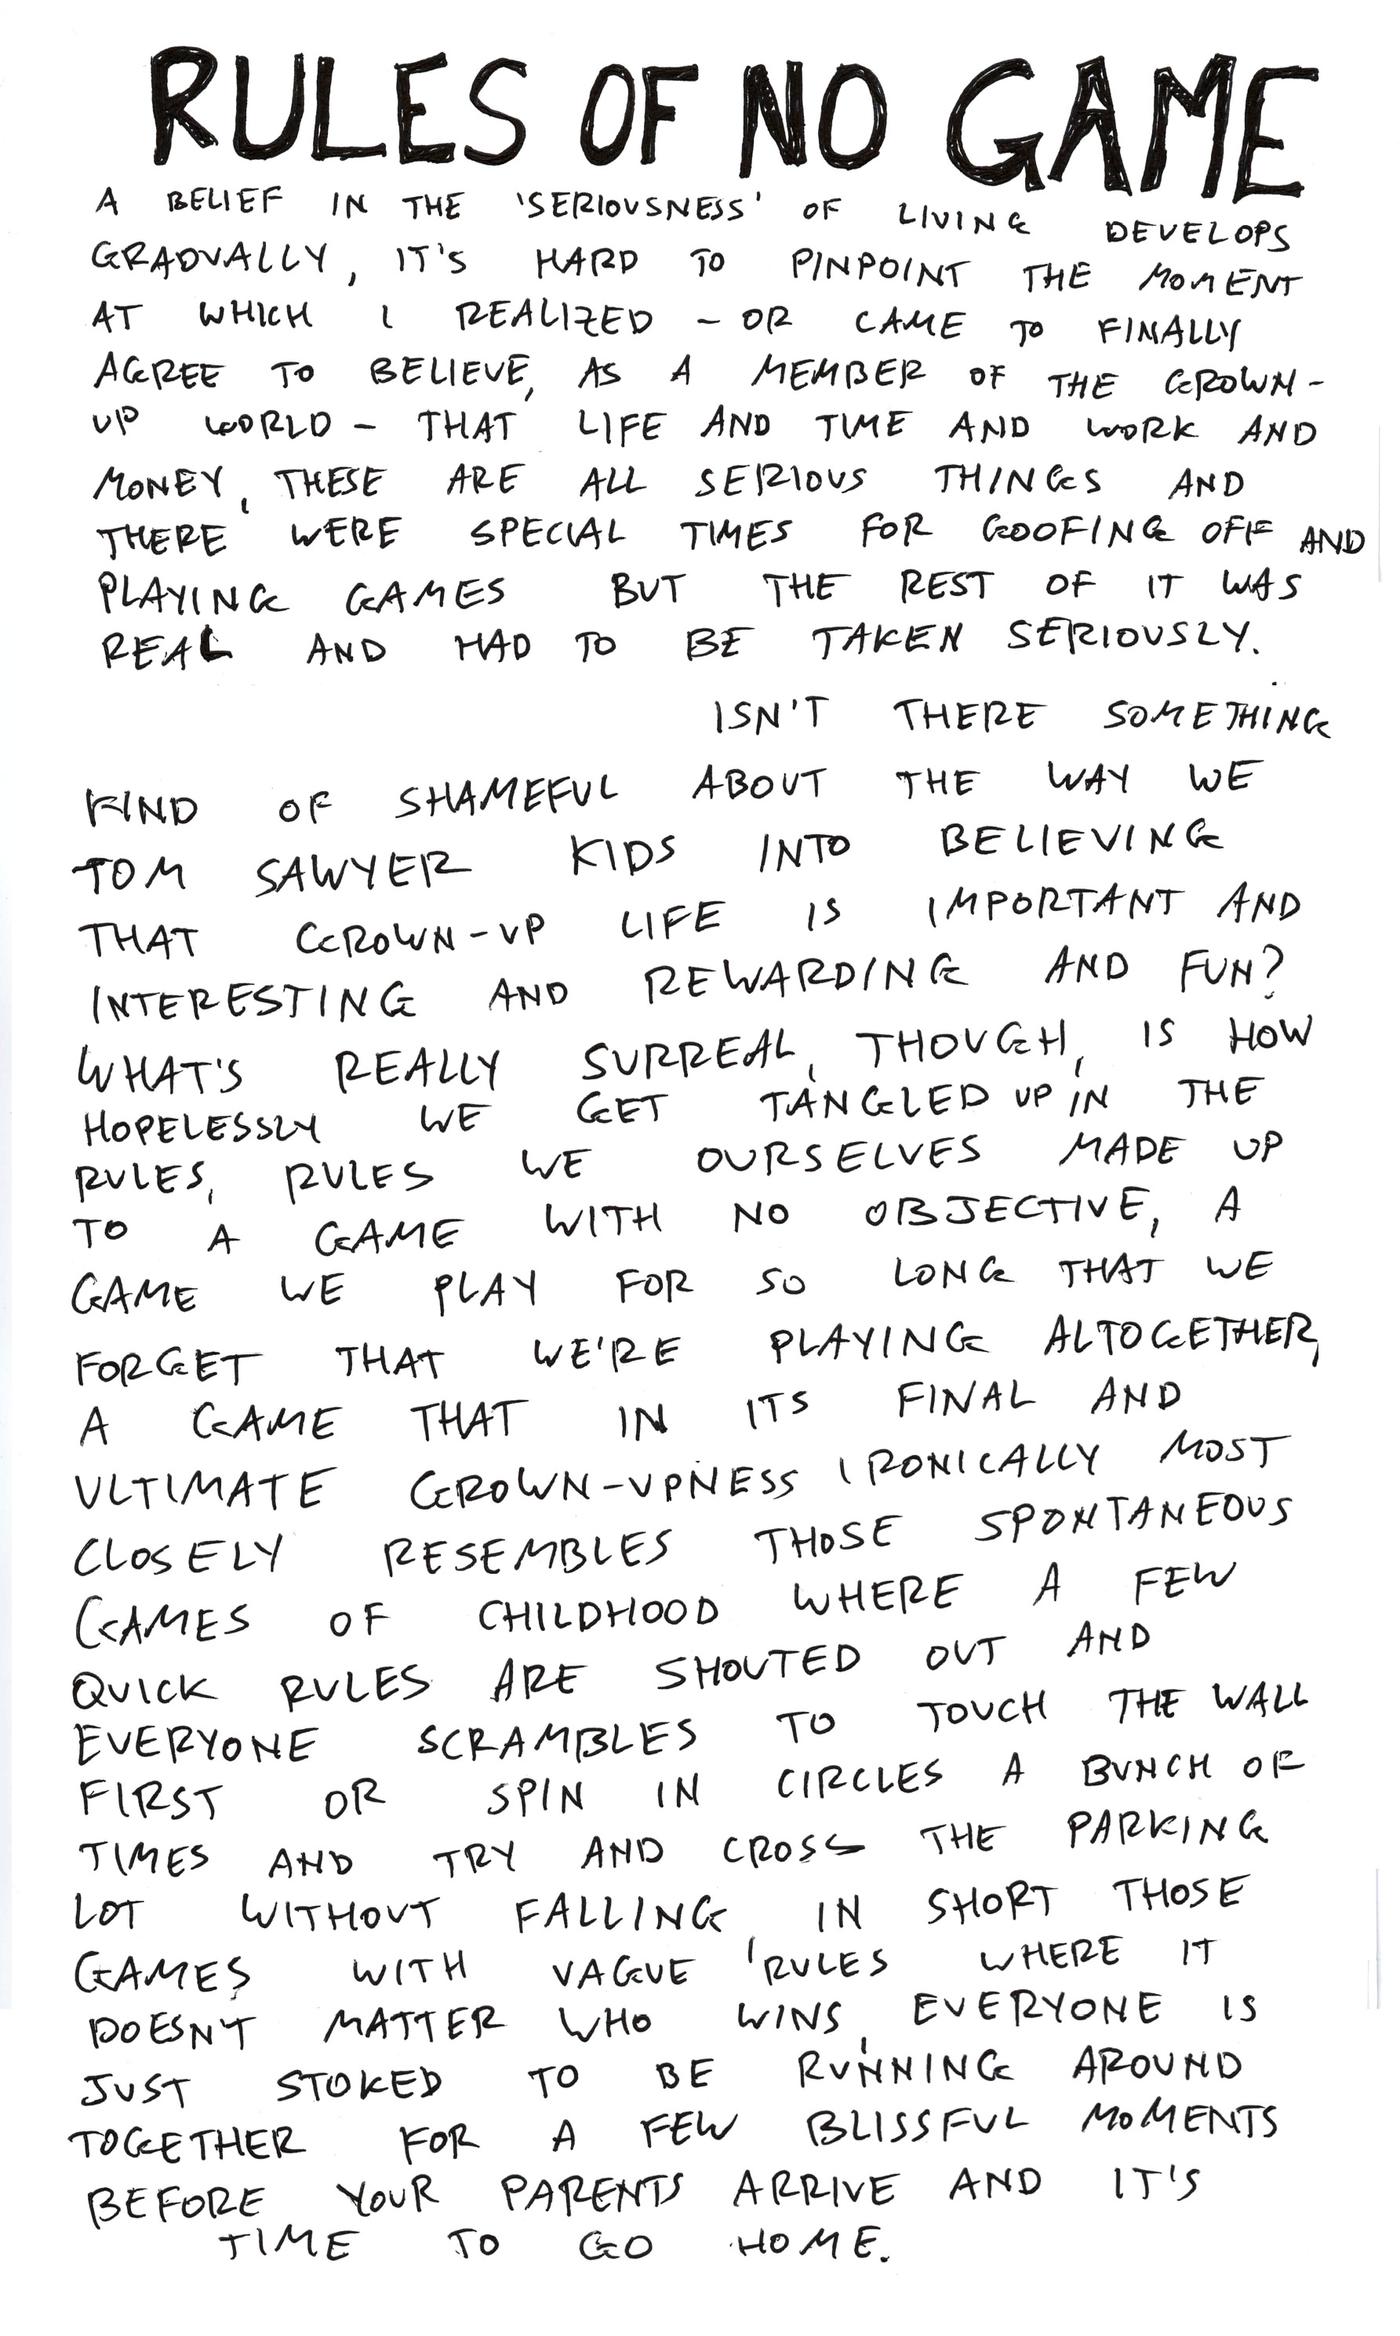 RULES OF NO GAME
A BELIEF IN THE 'SERIOUSNESS' OF LIVING DEVELOPS
GRADUALLY, IT'S HARD TO PINPOINT THE MOMENT
AT WHICH I REALIZED - OR CAME TO FINALLY
AGREE TO BELIEVE, AS A MEMBER OF THE GROWN-
UP WORLD - THAT LIFE AND TIME AND WORK AND
MONEY, THESE ARE ALL SERIOUS THINGS AND
THERE WERE SPECIAL TIMES FOR GOOFING OFF AND
PLAYING GAMES BUT THE REST OF IT WAS
REAL AND HAD TO BE TAKEN SERIOUSLY.
ISN'T THERE SOMETHING
KIND OF SHAMEFUL ABOUT THE WAY WE
TOM SAWYER KIDS INTO BELIEVING
THAT GROWN-UP LIFE IS IMPORTANT AND
INTERESTING AND REWARDING AND FUN?
WHAT'S REALLY SURREAL, THOUGH, IS HOW
HOPELESSLY WE GET TANGLED UP IN THE
RULES, RULES WE OURSELVES MADE UP
TO A GAME WITH NO OBJECTIVE, A
GAME WE PLAY FOR SO LONG THAT WE
FORGET THAT WE'RE PLAYING ALTOGETHER,
A GAME THAT IN ITS FINAL AND
ULTIMATE GROWN-UPNESS IRONICALLY MOST
CLOSELY RESEMBLES THOSE SPONTANEOUS
GAMES OF CHILDHOOD WHERE A FEW
QUICK RULES ARE SHOUTED OUT AND
EVERYONE SCRAMBLES TO TOUCH THE WALL
FIRST OR SPIN IN CIRCLES A BUNCH OF
TIMES AND TRY AND CROSS THE PARKING
LOT WITHOUT FALLING IN SHORT THOSE
GAMES WITH VAGUE 'RULES WHERE IT
DOESN'T MATTER WHO WINS, EVERYONE IS
JUST STOKED TO BE RUNNING AROUND
TOGETHER FOR A FEW BLISSFUL MOMENTS
BEFORE YOUR PARENTS ARRIVE AND IT'S
TIME TO GO HOME.